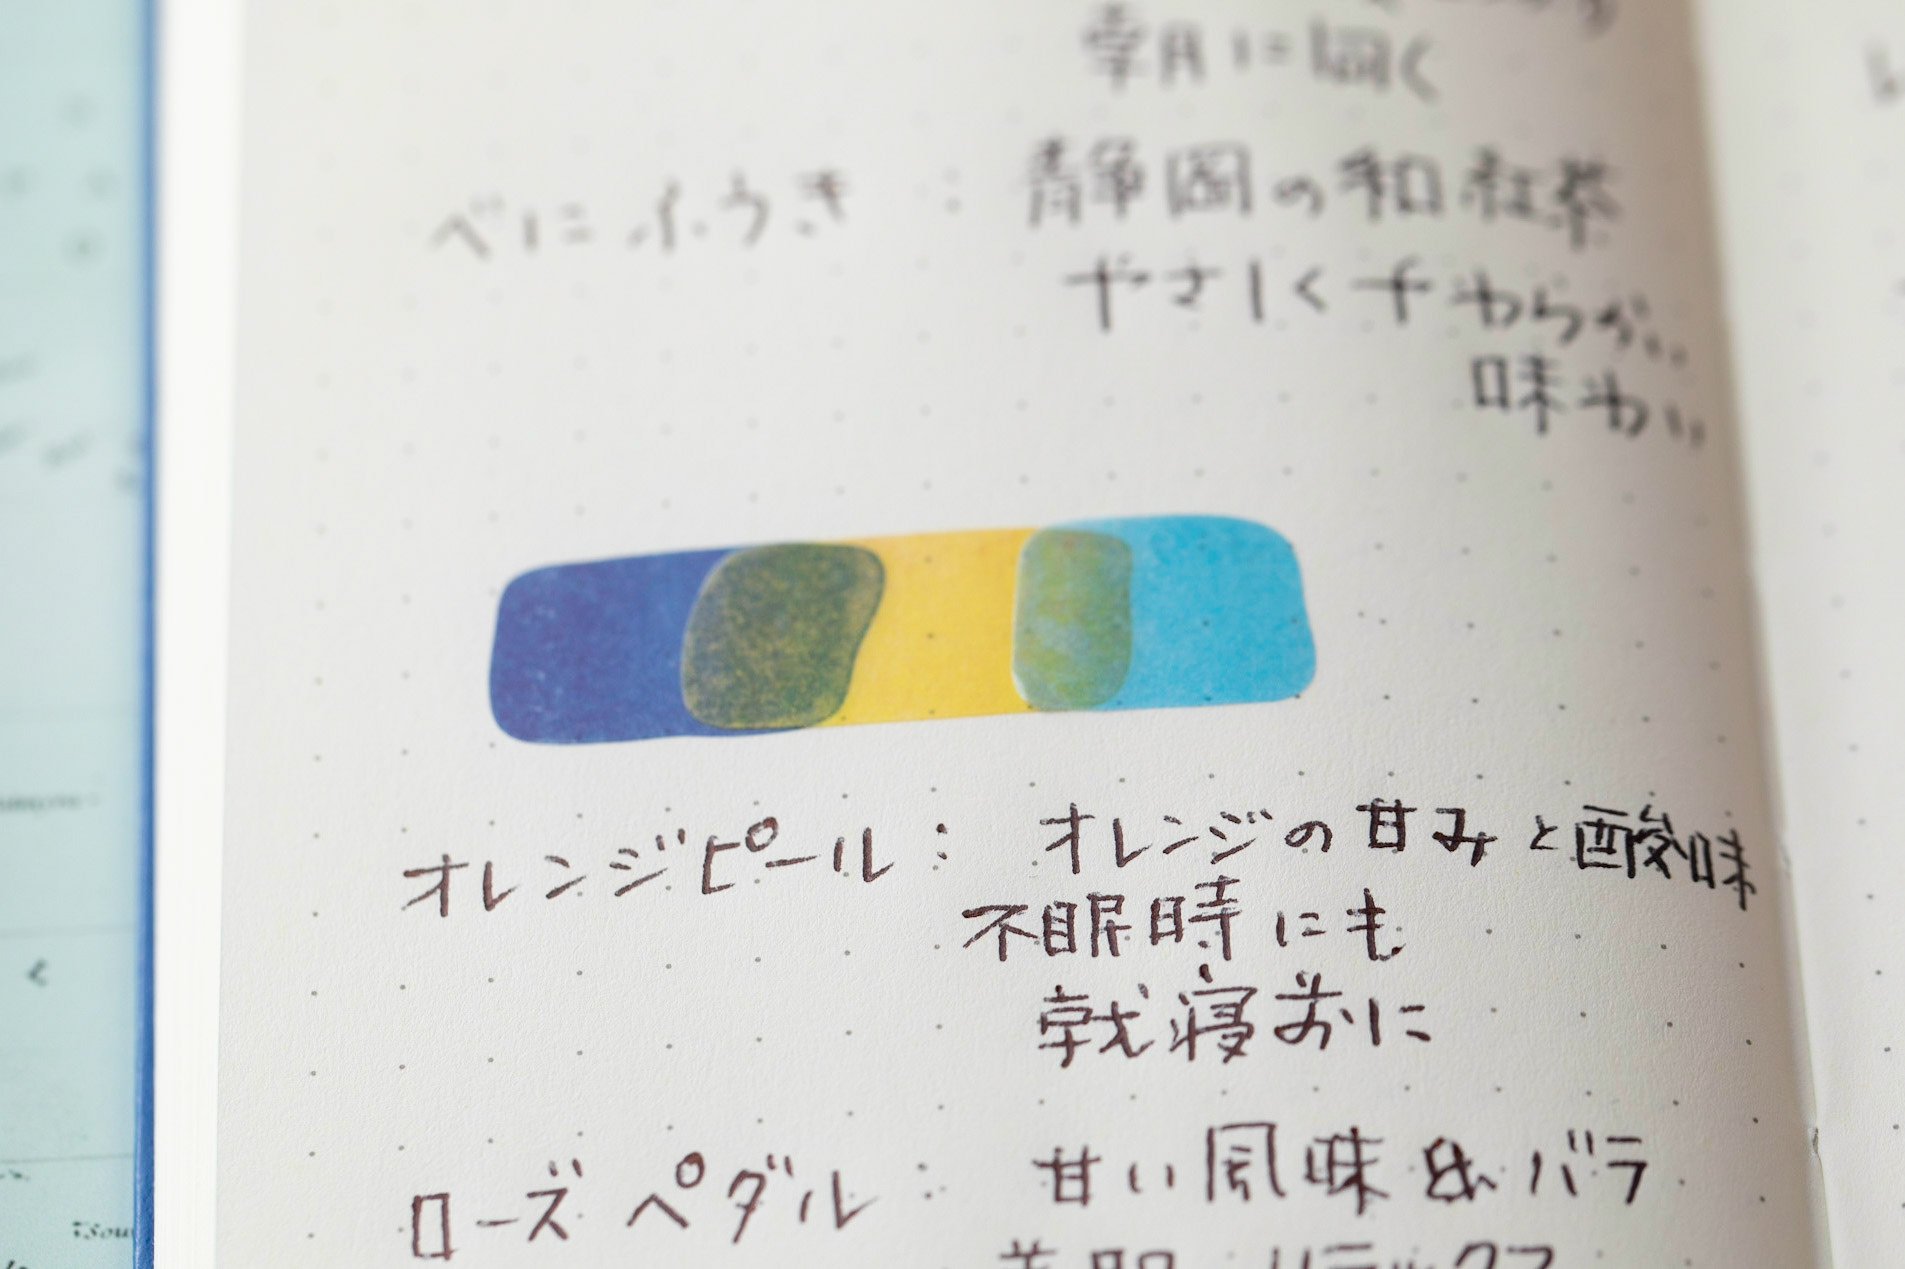 朝に向く
べにふうき : 静岡の和紅茶
やさしくやわらかい
味わい
オレンジピール : オレンジの甘みと酸味
不眠時にも
就寝前に
ローズペダル : 甘い風味&バラ
美肌 リラックス